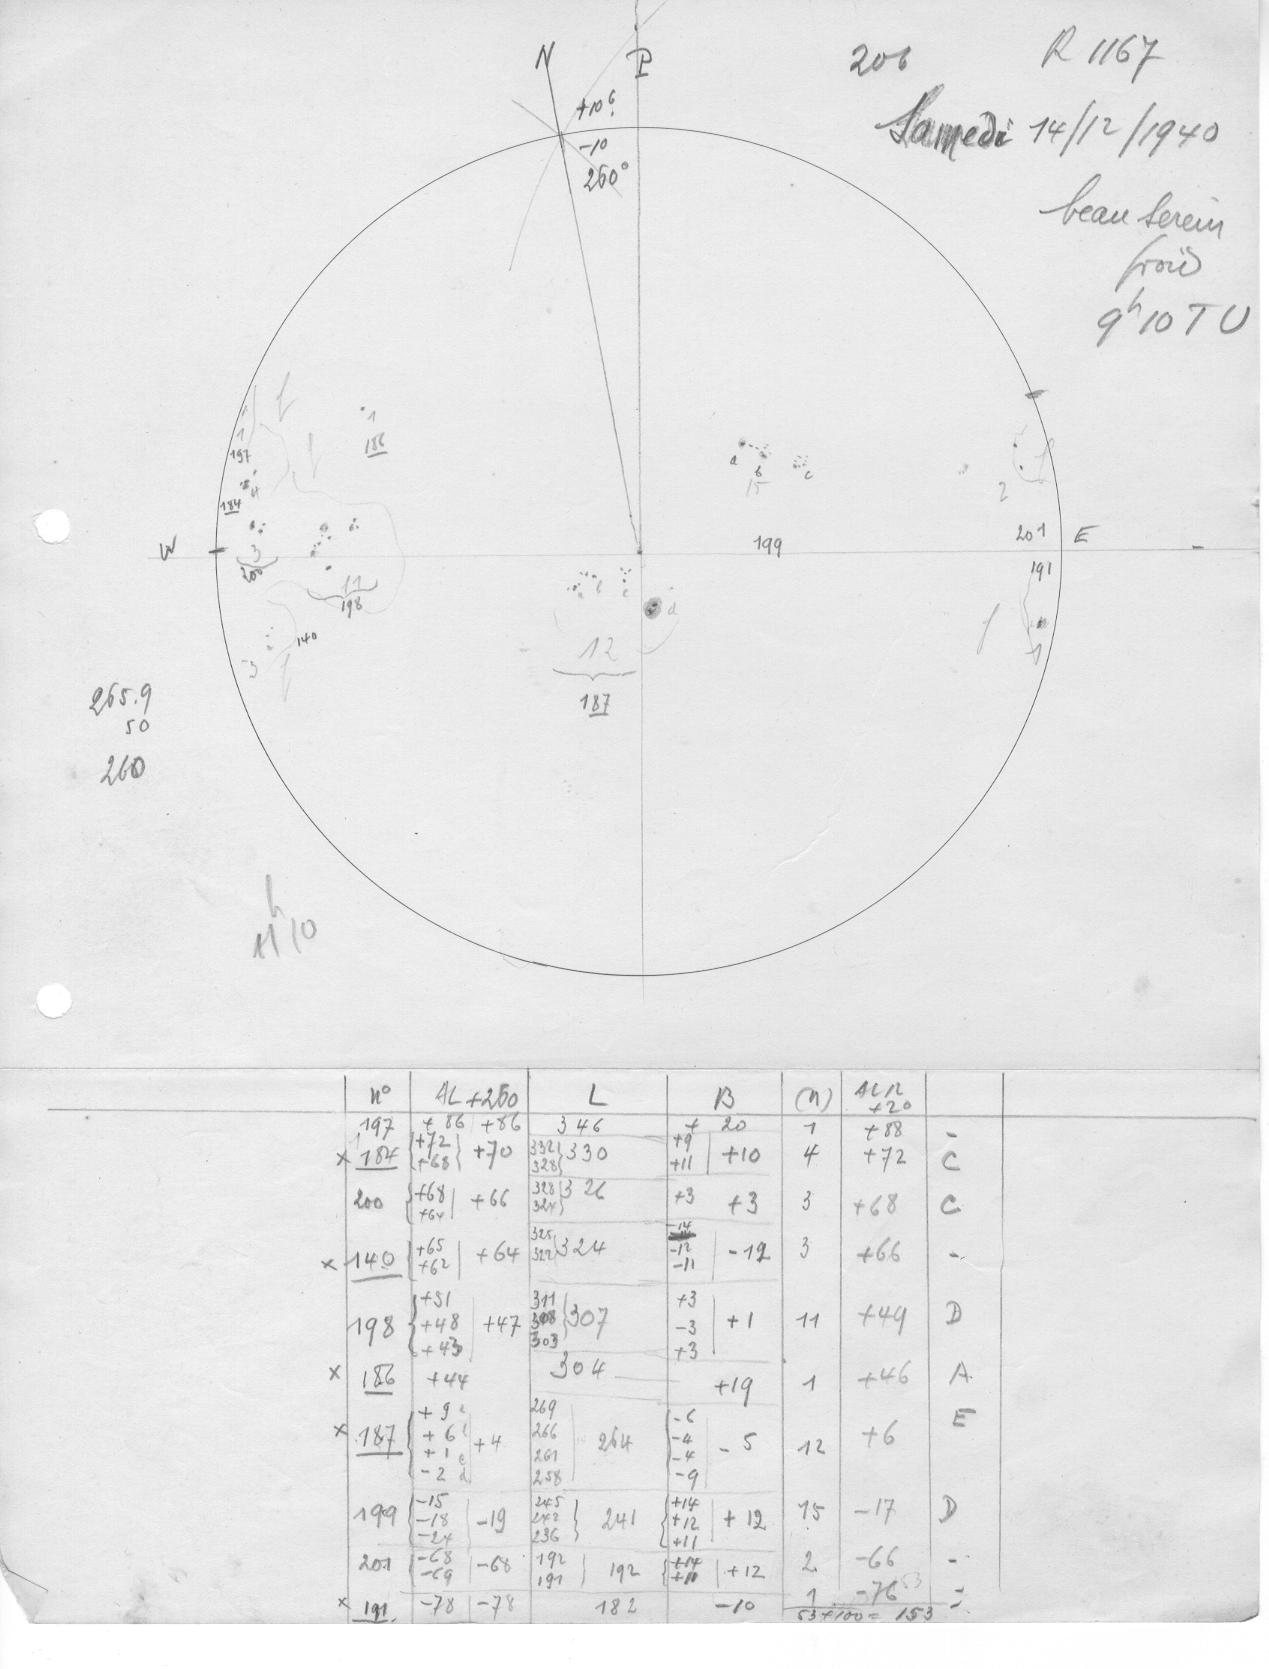 N P 206 R 1167
+10⁶.
Samedi 14/12/1940
-10
260°
beau Serein
froid
9h10 TU
1
1
197
1
186
a b c
15
4
184
2
W 3 199 201 E
200
11
198
191
a b c
d
140
3
12
187
1
265.9
50
260
11h10
n° AL +260 L B (n) ALR +20
197 +86 +86 346 +20 1 +88 -
x 184 +72 +68 +70 332 328 330 +9 +11 +10 4 +72 C
200 +68 +64 +66 328 324 326 +3 +3 3 +68 C
x 140 +65 +62 +64 325 322 324 -14 -12 -11 -12 3 +66 -
198 +51 +48 +43 +47 311 308 303 307 +3 -3 +3 +1 11 +49 D
x 186 +44 304 +19 1 +46 A
x 187 +9 +6 +1 -2 d +4 269 266 261 258 264 -6 -4 -4 -9 -5 12 +6 E
199 -15 -18 -24 -19 245 242 236 241 +14 +12 +11 +12 15 -17 D
201 -68 -69 -68 192 191 192 +14 +10 +12 2 -66 -
x 191 -78 -78 182 -10 1 -76 -
53
53+100= 153